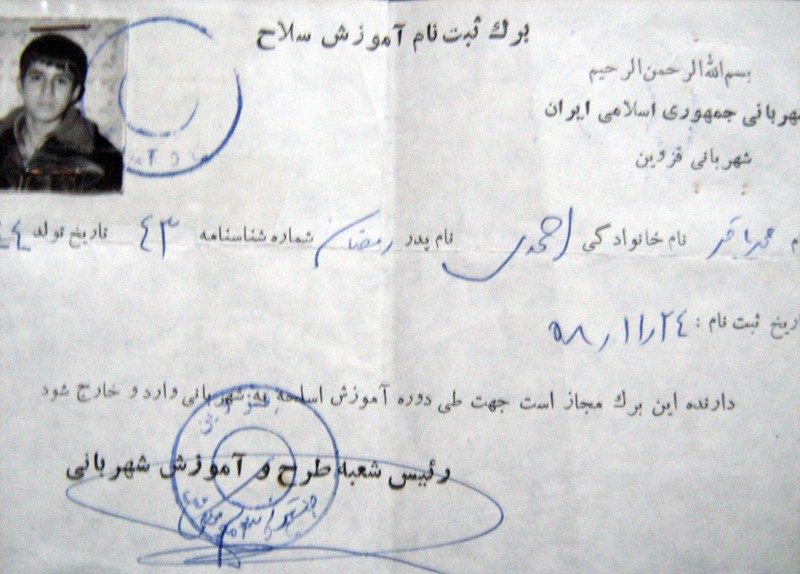 برك ثبت نام آموزش سلاح
بسم الله الرحمن الرحیم
شهربانی جمهوری اسلامی ایران
شهربانی قزوین
نام محمدباقر نام خانوادگی احمدی نام پدر رمضان شماره شناسنامه ٤٣ تاریخ تولد ٤٤
تاریخ ثبت نام : ٥٨/١١/٢٤
دارنده این برك مجاز است جهت طی دوره آموزش اسلحه به شهربانی وارد و خارج شود
رئیس شعبه طرح و آموزش شهربانی